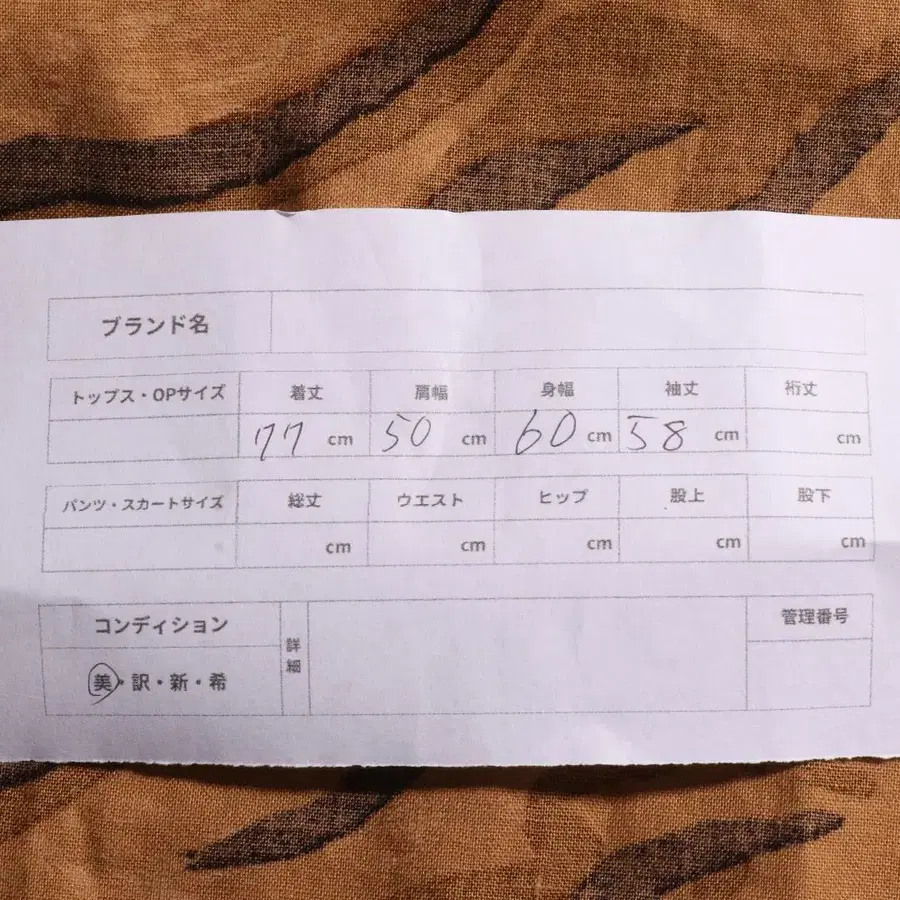 ブランド名
トップス・OPサイズ 着丈 肩幅 身幅 袖丈 裄丈
77 cm 50 cm 60 cm 58 cm cm
パンツ・スカートサイズ 総丈 ウエスト ヒップ 股上 股下
cm cm cm cm cm
コンディション 詳細 管理番号
美・訳・新・希